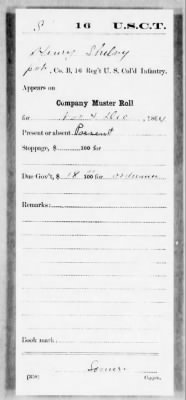 S 16 U.S.C.T.
Henry Shelvy
pvt, Co. B, 16 Reg't U. S. Col'd Infantry.
Appears on
Company Muster Roll
for Nov & Dec, 1864
Present or absent Present
Stoppage, $ 100 for
Due Gov't, $ 18 100 for ordnance
Remarks:
Book mark:
(358) Copyist.